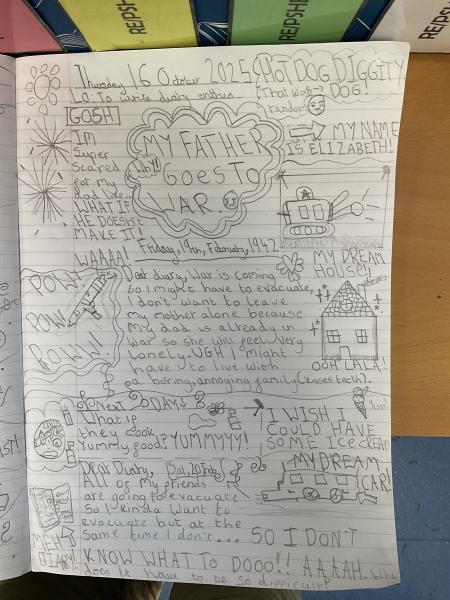 Thursday 16 October 2025
LO: To write diary entries
HOT DOG DIGGITY
DOG!
(That was random)
GOSH
I'm
Super
scared
for my
dad like..
WHAT IF
HE DOESN'T
MAKE IT!
WAAAA!
Why!!
MY FATHER
GOES TO
WAR.
MY NAME
IS ELIZABETH!
Friday, 19th, February, 1942
MY DREAM
HOUSE!
POW!
POW!
POW!!
Dear diary, War is coming
so I might have to evacuate,
I don't want to leave
my mother alone because
my dad is already in
war so she will feel very
lonely. UGH I might
have to live with
a boring, annoying family (kisses teeth).
OOH LALA!
NEXT DAY
What if
they cook
Yummy food? YUMMYYY!
I WISH I
COULD HAVE
SOME ICE CREAM
Yum!
Dear Diary, Sat, 20 Feb
All of my friends
are going to evacuate
so I kinda want to
evacuate but at the
same time I don't... SO I DON'T
KNOW WHAT TO DOOO!! AAAAH..
does it have to be so difficult?
MY DREAM
CAR!
MEH
DIARY!
RE/PSHE
RE/PSHE
RE/PSHE